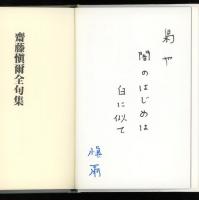 齋藤愼爾全句集
梟や
闇のはじめは
白に似て
愼爾